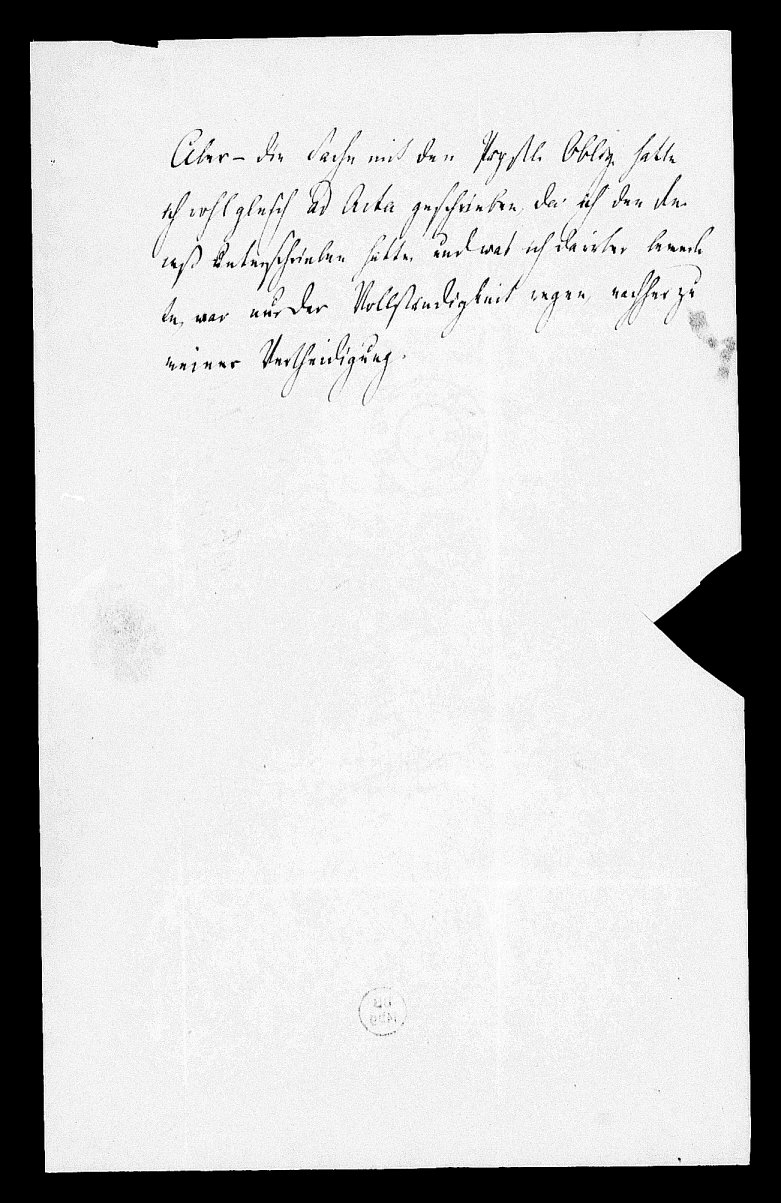 Aber – die Sache mit den Papstl. Oblig. hatte
ich wohl gleich ad Acta geschrieben, da ich den Re-
ceß unterschrieben hatte, und was ich darüber bemerk
te, war nur der Vollständigkeit wegen, nachher zu
meiner Vertheidigung.